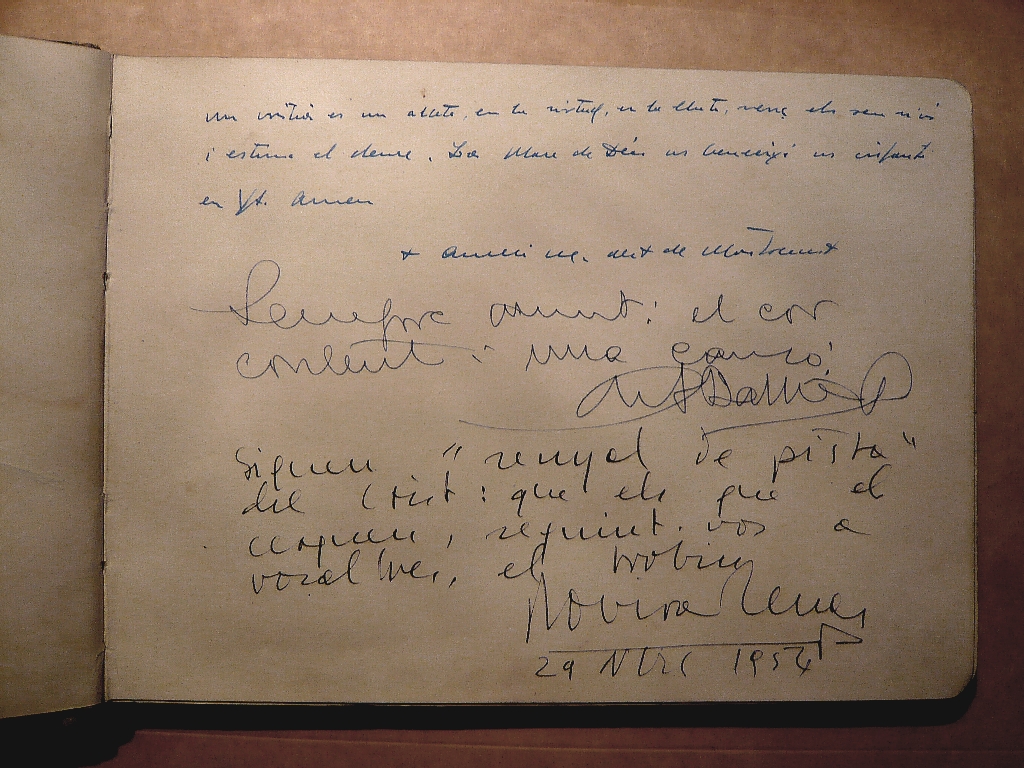 un es un atleta, en la virtut, en la lluita, venç els seu
i estima el deure. La Mare de Déu us beneeixi us infants
en Xt. Amen
+ Aureli Mª. abt de Montserrat
Sempre amunt: el cor
content i una cançó!
Siguen "senyal de pista"
del Crist: que els que el
cerquen, seguint-vos a
vosaltres, el trobin
Rovira Tenas
29 1954